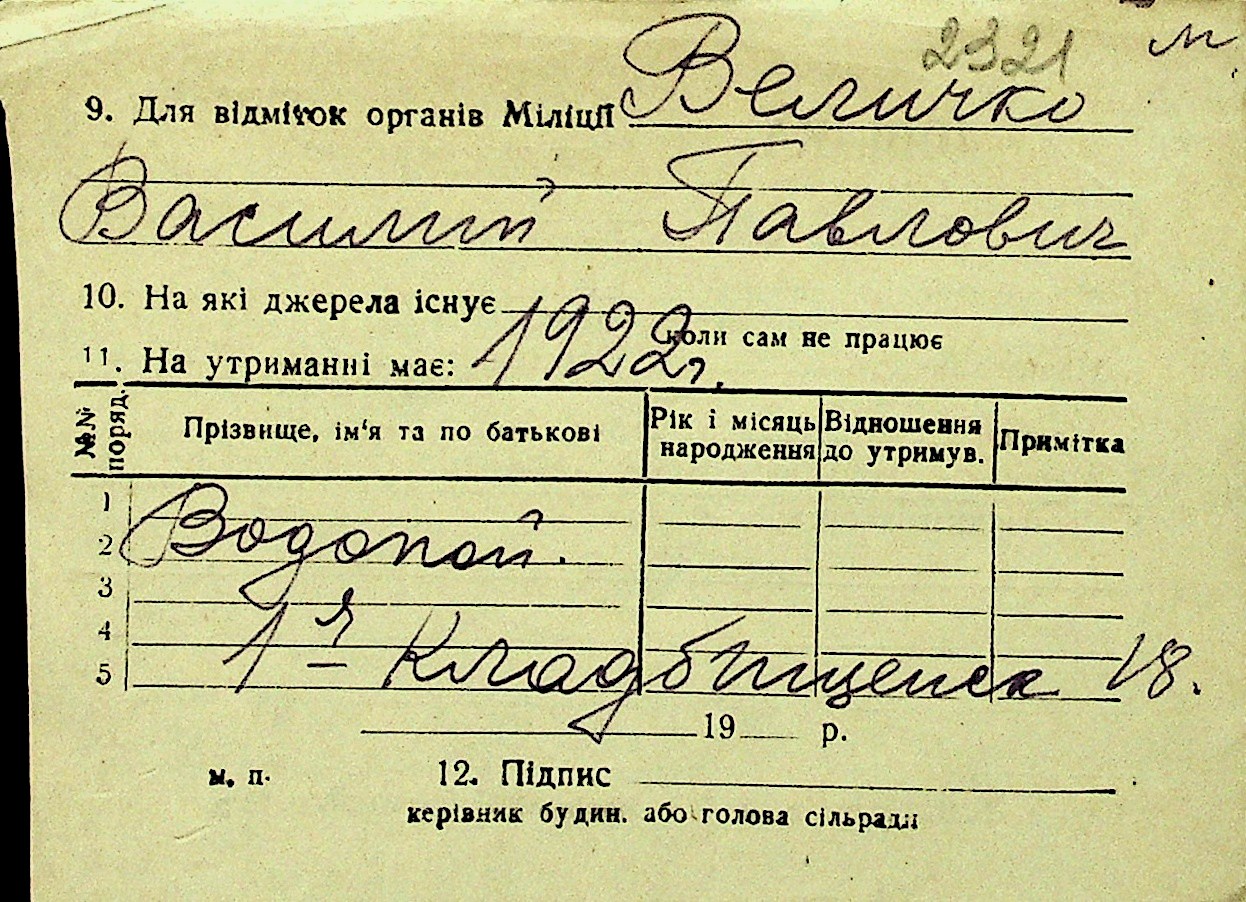 2321 м
9. Для відміток органів Міліції Величко
Василий Павлович
10. На які джерела існує
коли сам не працює
11. На утриманні має: 1922 г.
№№ поряд. Прізвище, ім'я та по батькові Рік і місяць народження Відношення до утримув. Примітка
1
2 Водопой.
3
4
5 1я Кладбищенск 18.
19 р.
м. п. 12. Підпис
керівник будин. або голова сільради